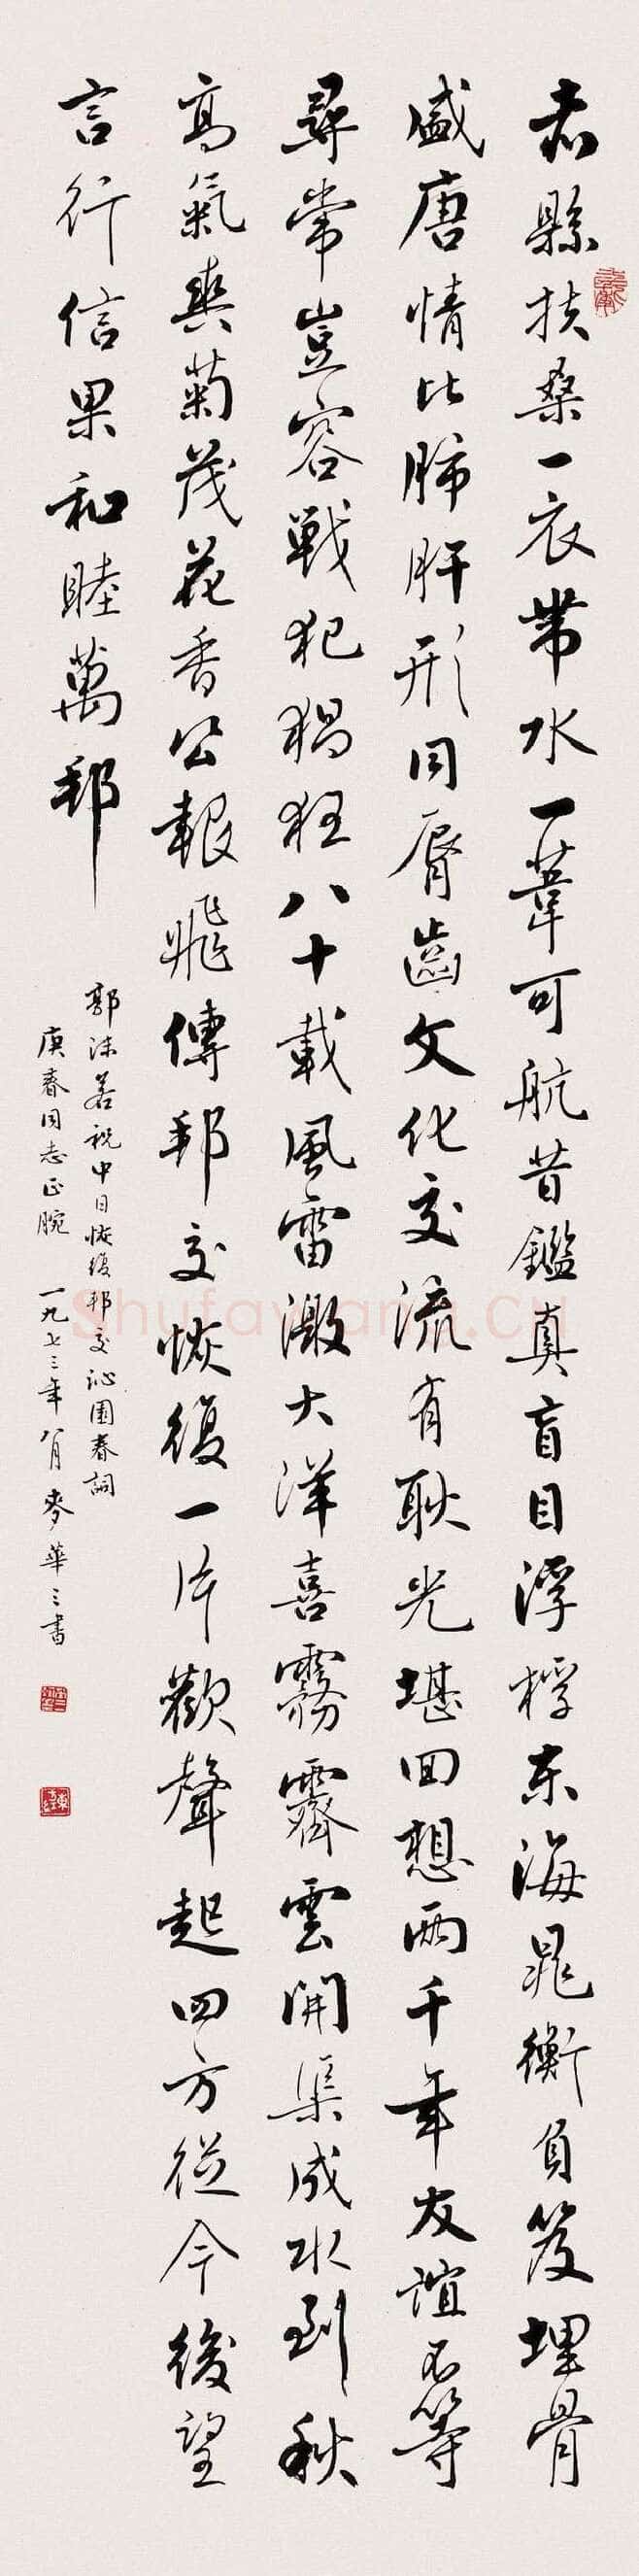 赤縣扶桑一衣帶水一葦可航昔鑑真盲目浮桴東海晁衡負笈埋骨
盛唐情比肺肝形同脣齒文化交流有耿光堪回想兩千年友誼不等
尋常豈容戰犯猖狂八十載風雷激大洋喜霧霽雲開渠成水到秋
高氣爽菊茂花香公報飛傳邦交恢復一片歡聲起四方從今後望
言行信果和睦萬邦
郭沫若祝中日恢復邦交沁園春詞
庚春同志正腕 一九七三年八月 麥華三書
Shufawang.cn